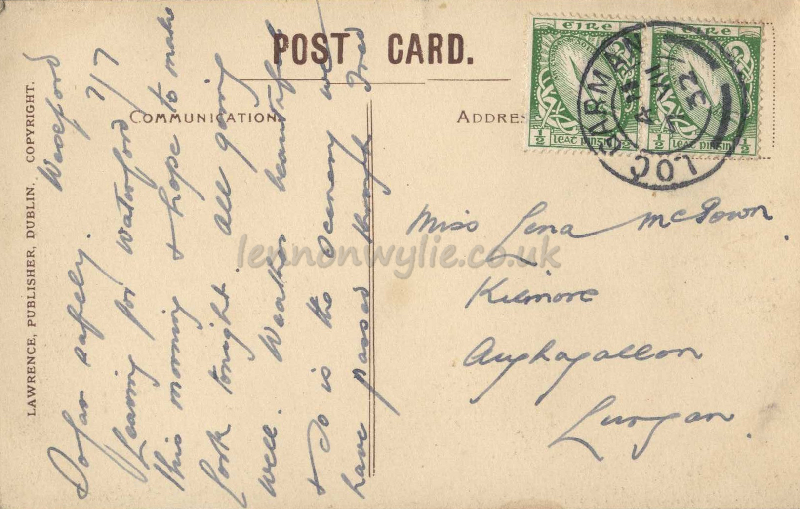 POST CARD.
COMMUNICATION.
ADDRE
LAWRENCE, PUBLISHER, DUBLIN. COPYRIGHT.
EIRE
½ LEAT PINGIN ½
EIRE
½ LEAT PINGIN ½
LOC GARMAN
7 VII
32
Wexford
7/7
So far safely.
Leaving for Waterford
this morning & hope to make
Cork tonight. All going
well. Weather beautiful
& so is the scenery we
have passed through Fred
Miss Lena McGown.
Kilmore
Aughagallon
Lurgan.
lennonwylie.co.uk